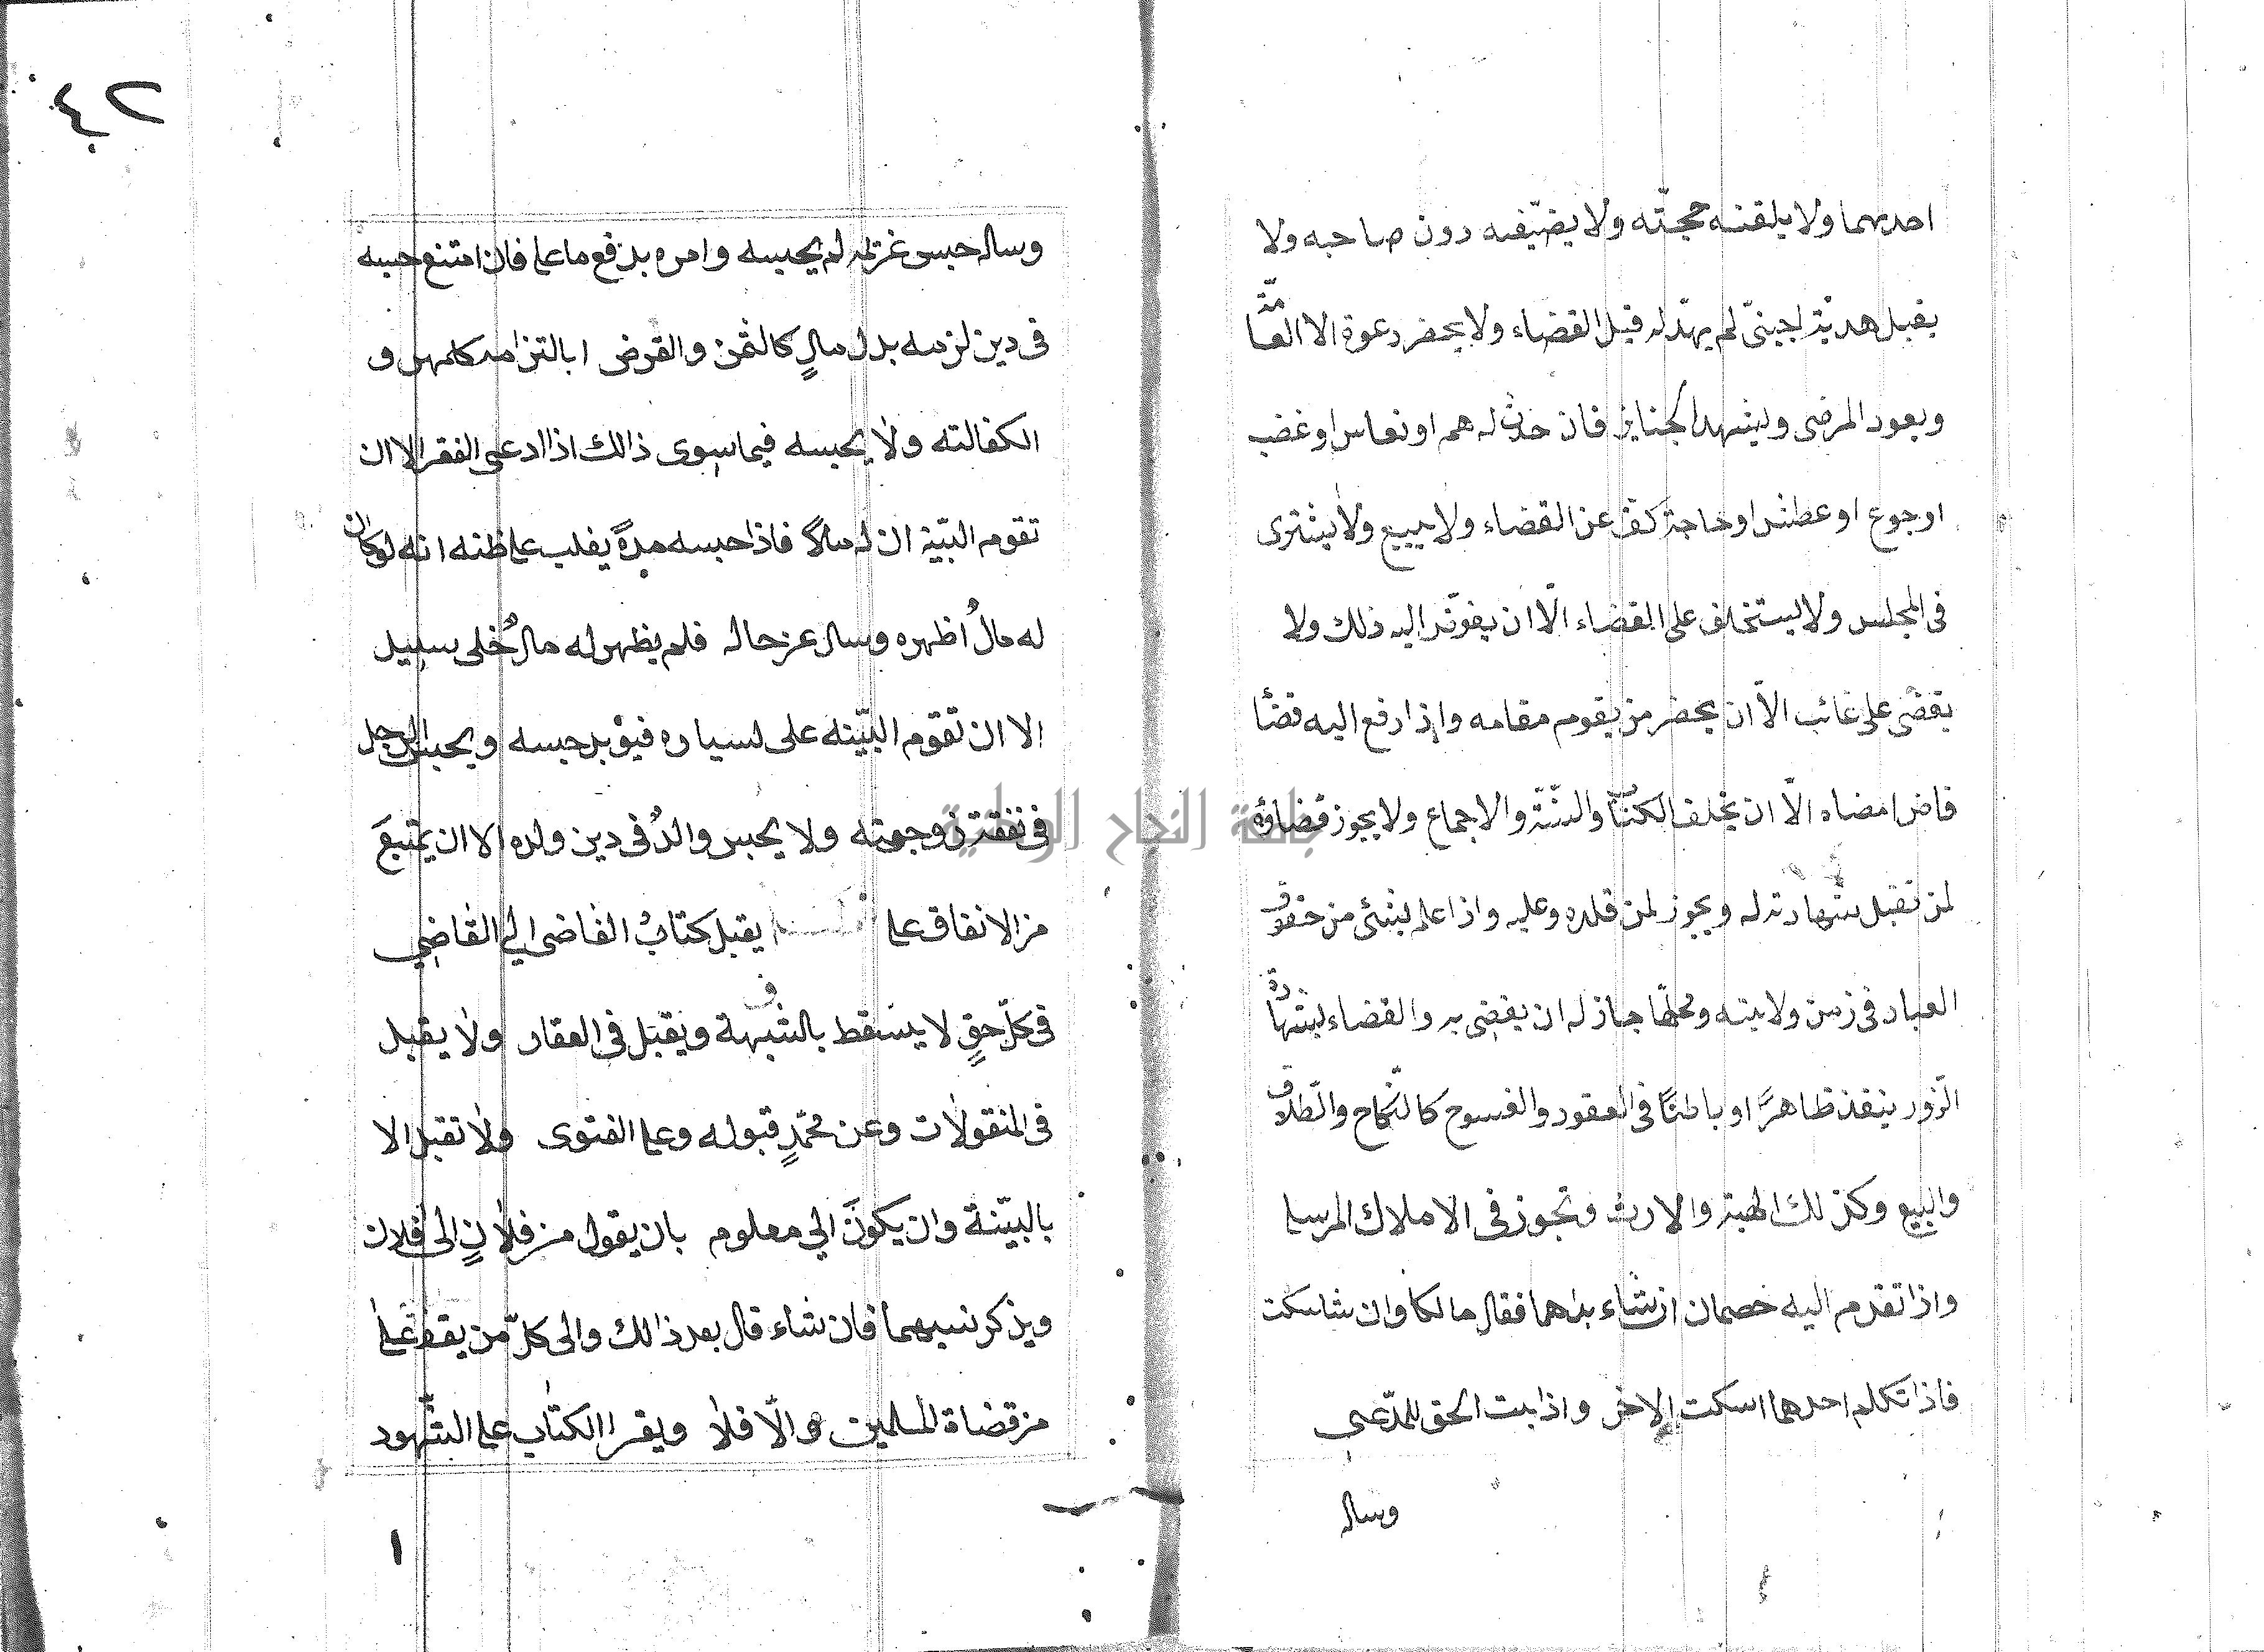 احدهما ولا يلقنه حجّته ولا يضيّفه دون صاحبه ولا
يقبل هديّة اجنبىّ لم يهدله قبل القضاء ولا يحضر دعوة الا العامّة
ويعود المرضى ويشهد الجنايز فان حدث له هم او نعاس او غضب
او جوع او عطش او حاجة كفّ عن القضاء ولا يبيع ولا يشترى
فى المجلس ولا يستخلف على القضاء الّا ان يفوّض اليه ذلك ولا
يقضى على غائب الّا ان يحضر من يقوم مقامه واذا رفع اليه قضا
قاض امضاه الّا ان يخلف الكتاب والسّنّة والاجماع ولا يجوز قضاؤه
لمن تقبل شهادته له ويجوز لمن قلده وعليه واذا علم بشئ من حقوق
العباد فى زمن ولايته ومحلّها جاز له ان يقضى به والقضاء بشهادة
الزّور ينفذ ظاهرًا او باطنًا فى العقود والفسوخ كالنّكاح والطّلاق
والبيع وكذلك الهبة والارث وتجوز فى الاملاك المرسلة
واذا تقدم اليه خصمان ان شاء بداهما فقال مالكما وان شا سكت
فاذا تكلم احدهما اسكت الاخر واذا بت الحق للمدّعى
وساله
٤٢
وساله حبس غريمه لم يحبسه وامره بدفع ما عليه فان امتنع حبسه
فى دين لزمه بدل مالٍ كالثمن والقرض ا بالتزامه كالمهر و
الكفالته ولا يحبسه فيما سوى ذالك اذا ادعى الفقر الا ان
تقوم البيّنة ان له مالًا فاذا حبسه مدةً يغلب على ظنه انه لو كان
له مالُ اظهره وسال عن حاله فلم يظهر له مالُ خلى سبيل
الا ان تقوم البيّنه على يساره فيؤبد حبسه ويحبس الرجل
فى نفقة زوجته ولا يحبس والدُ فى دين ولده الا ان يمتنعَ
من الانفاق عليه يقبل كتابُ القاضى الى القاضى
فى كلّ حقٍ لا يسقط بالشبهة ويقبل فى العقار ولا يقبل
فى المنقولات وعن محمّدٍ قبوله وعليه الفتوى ولا تقبل الا
بالبيّنة وان يكونَ الى معلوم بان يقول من فلانٍ الى فلان
ويذكر نسبهما فان شاء قال بعد ذالك والى كلّ من يقف عليه
من قضاة المسلمين والّا فلا ويقرا الكتاب على الشهود
جامعة النجاح الوطنية